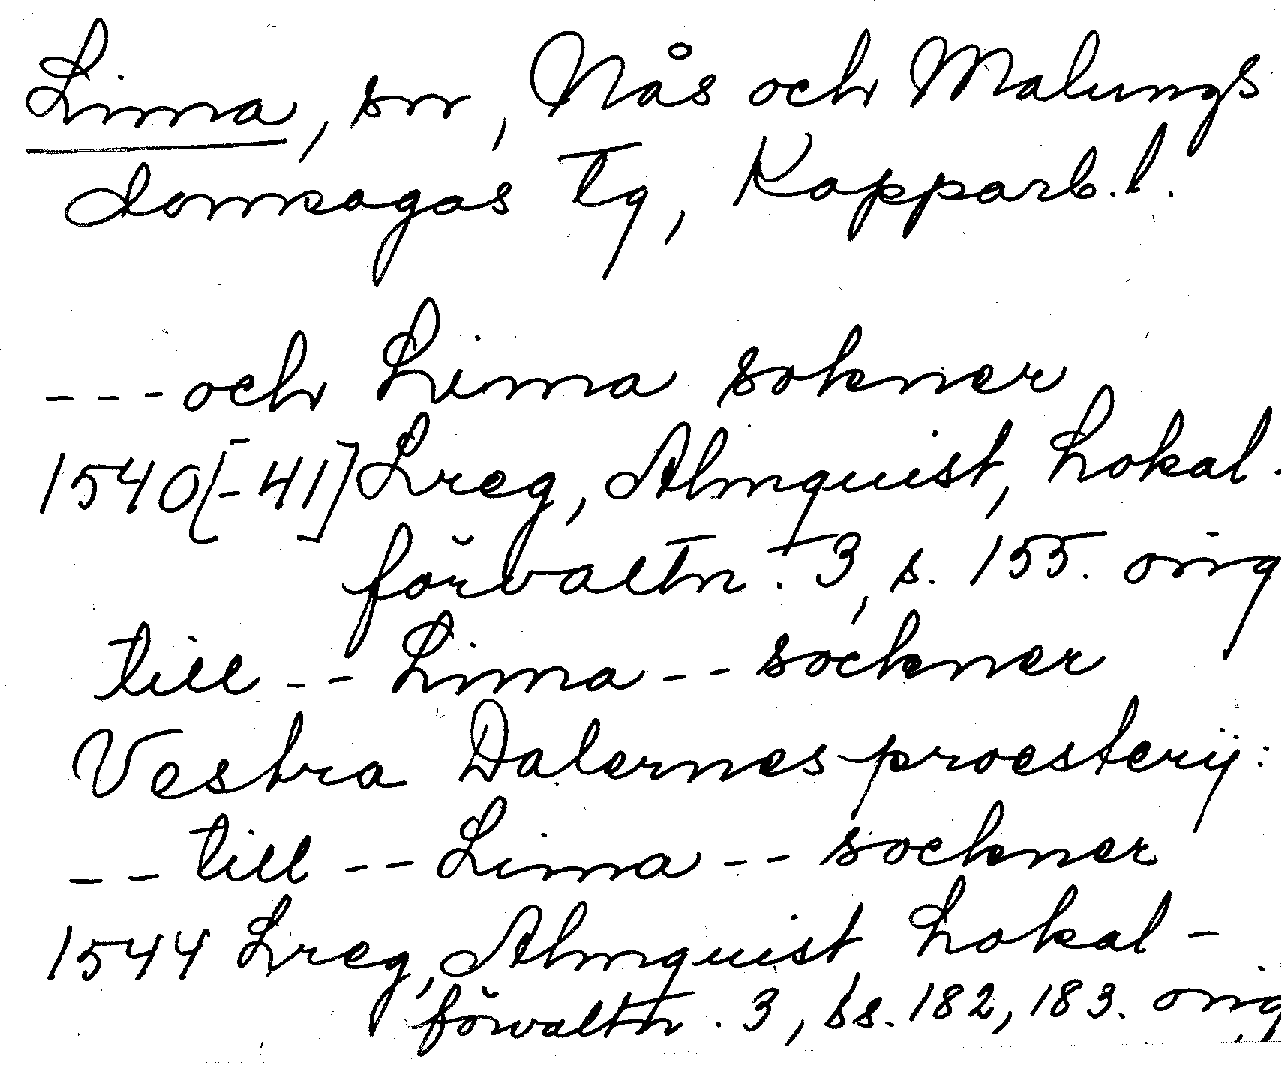 Lima, sn, Nås och Malungs
domsagas tg, Kopparb. l.
---och Lima sokner
1540[-41] Lreg, Almquist, Lokal-
förvaltn. 3, s. 155. orig
till -- Lima -- sockner
Vestra Dalernes proesterij:
-- till -- Lima -- sockner
1544 Lreg, Almquist, Lokal-
förvaltn. 3, ss. 182, 183. orig